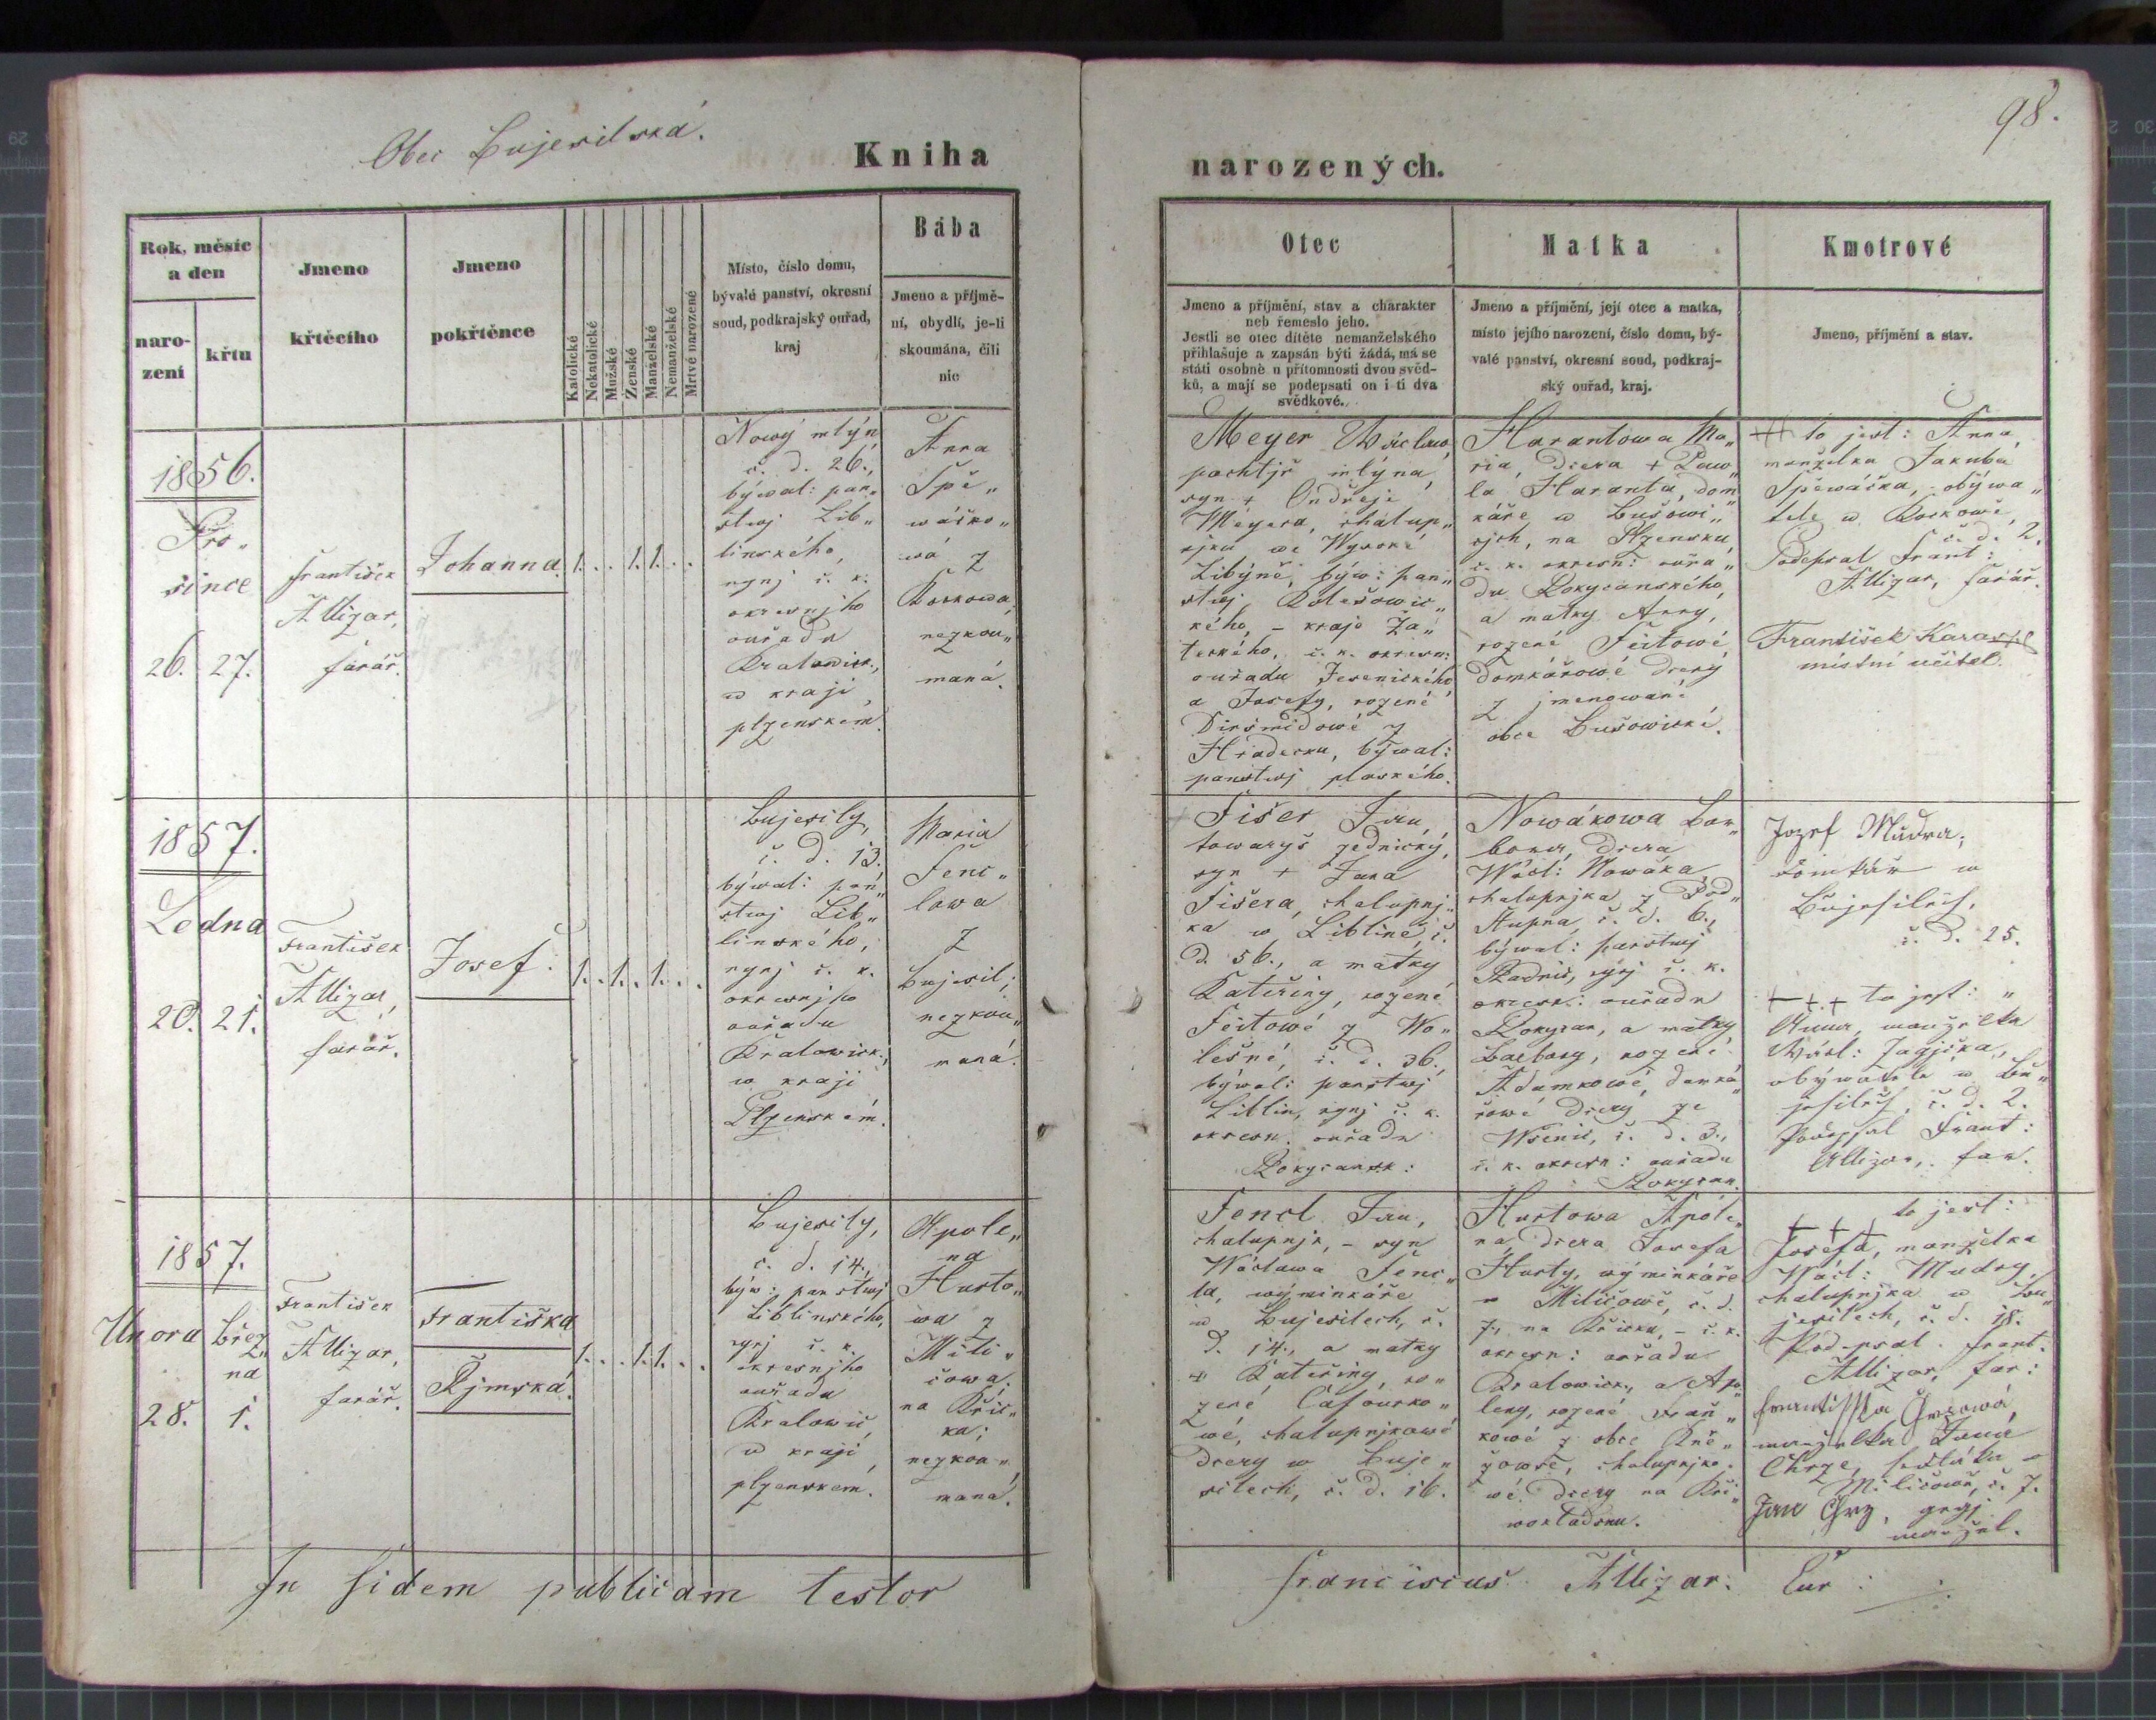 Obec Bujesilská.
Kniha
narozených.
98.
Rok, měsíc
a den
naro-
zení
křtu
Jmeno
křtěcího
Jmeno
pokřtěnce
Katolické
Nekatolické
Mužské
Ženské
Manželské
Nemanželské
Mrtvé narozené
Místo, číslo domu,
bývalé panství, okresní
soud, podkrajský ouřad,
kraj
Bába
Jmeno a příjmě-
ní, obydlí, je-li
skoumána, čili
nic
Otec
Jmeno a příjmění, stav a charakter
neb řemeslo jeho.
Jestli se otec dítěte nemanželského
přihlašuje a zapsán býti žádá, má se
státi osobně u přítomnosti dvou svěd-
ků, a mají se podepsati on i ti dva
svědkové.
Matka
Jmeno a příjmění, její otec a matka,
místo jejího narození, číslo domu, bý-
valé panství, okresní soud, podkraj-
ský ouřad, kraj.
Kmotrové
Jmeno, příjmění a stav.
1856.
Pro„
since
26. 27.
František
Alligar,
farář.
Johanna
1. . . 1. 1. . .
Nowý mlýn
č. d. 26.,
býwal: pan„
stwj Lib„
linského,
nynj c. k.
okresnjho
ouřadu
Kralowick.,
w kraji
plzenském.
Anna
Spě„
wáčko„
wá z
Kockowa,
nezkou„
maná.
Meyer Wáclaw,
pachtjř mlýna,
syn + Ondřeje
Meyera, chalup„
njka we Wysoké
Libýně, býw: pan„
stwj Kolešowic„
kého, – kraje Ža„
teckého, c. k. okresn:
ouřadu Jesenického
a Josefy, rozené
Diršmidowé z
Hradecku, býwal:
panstwj plaského.
Harantowa Ma„
ria, dcera + Paw„
la Haranta, dom„
káře w Bušowi„
cjch, na Plzensku,
c. k. okresn: ouřa„
du Rokycanského,
a matky Anny,
rozené Feitowé,
domkářowé dcery
z jmenowané
obce Bušowické.
+++ to jest: Anna,
manželka Jakuba
Spěwáčka, obýwa„
tele w Kockowě,
č. d. 2.
Podepsal Frant:
Alligar, farář.
František Karas
místní učitel.
1857.
Ledna
20. 21.
František
Alligar,
farář.
Josef.
1. . 1. . 1. . .
Bujesily,
č. d. 13.
býwal: pan„
stwj Lib„
linského,
nynj c. k.
okresnjho
ouřadu
Kralowick.,
w kraji
Plzenském.
Maria
Fenc„
lowa
z
Bujesil;
nezkou„
maná.
Fišer Jan,
towaryš zednický,
syn + Jana
Fišera, chalupnj„
ka w Liblíně, č.
d. 56., a matky
Kateřiny, rozené
Feitowé z Wo„
lešné, č. d. 36.,
býwal: panstwj
Liblin, nynj c. k.
okresn. ouřadu
Rokycansk:
Nowákowa Bar„
bora, dcera
Wácl: Nowáka,
chalupnjka z Pod„
Stupna, č. d. 6.,
býwal: panstwj
Radnic, nynj c. k.
okresn: ouřadu
Rokycan, a matky
Barbory, rozené
Adamkowé, domká„
řowé dcery ze
Wšenic, č. d. 3.,
c. k. okresn: ouřadu
Rokycan.
Jozef Mudra,
domkář w
Bujesilech,
č. d. 25.
+++ to jest:
Anna, manželka
Wácl: Zagjčka,
obýwatele w Bu„
jesilech, č. d. 2.
Podepsal Frant:
Alligar, far.
1857.
Unora Břez„
na
28. 1.
František
Alligar,
farář.
Františka
Řjmská.
1. . . 1. 1. . .
Bujesily,
č. d. 14.,
býw: panstwj
Liblinského,
nynj c. k.
okresnjho
ouřadu
Kralowic,
w kraji
plzenském.
Apole„
na
Husto„
wa z
Mili„
čowa
na Křic„
ka;
nezkou„
maná.
Fencl Jan,
chalupnjk, – syn
Wáclawa Fenc„
la, wýminkáře
w Bujesilech, č.
d. 14., a matky
+ Kateřiny, ro„
zené Cafourko„
wé, chalupnjkowé
dcery w Buje„
silech, č. d. 16.
Hustowa Apole„
na dcera Josefa
Husty, wýminkáře
w Miličowě, č. d.
7., na Křicku, – c. k.
okresn: ouřadu
Kralowick., a Apo„
leny, rozené
kowé z obce Kně„
žowse, chalupnjko„
wé dcery na Kři„
wokládsku.
+++ to jest:
Josefa, manželka
Wácl: Mudry,
chalupnjka w Bu„
jesilech, č. d. 18.
Podepsal Frant.
Alligar, far:
Františka Chrzowá,
manželka Jana
Chrze, sedláka w
Miličowě, č. 7.
Jan Chrz, gegj
manžel.
In fidem publicam testor
Franciscus Alligar: Cur: